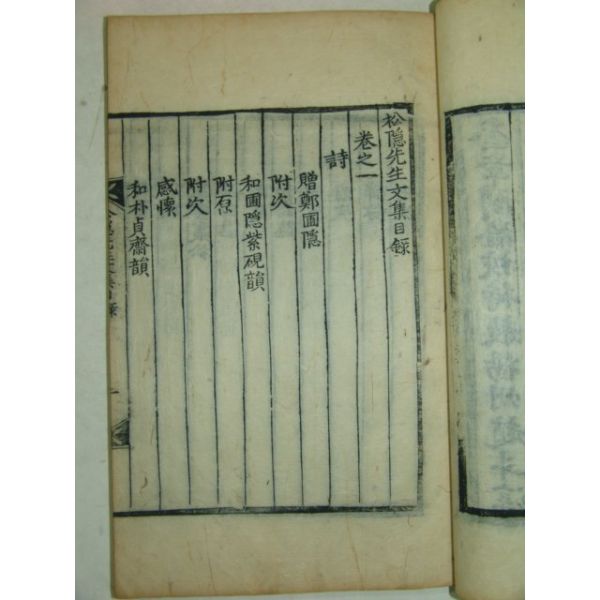 松隱先生文集目錄
卷之一
詩
贈鄭圃隱
附次
和圃隱紫硯韻
附原
附次
感懷
和朴貞齋韻